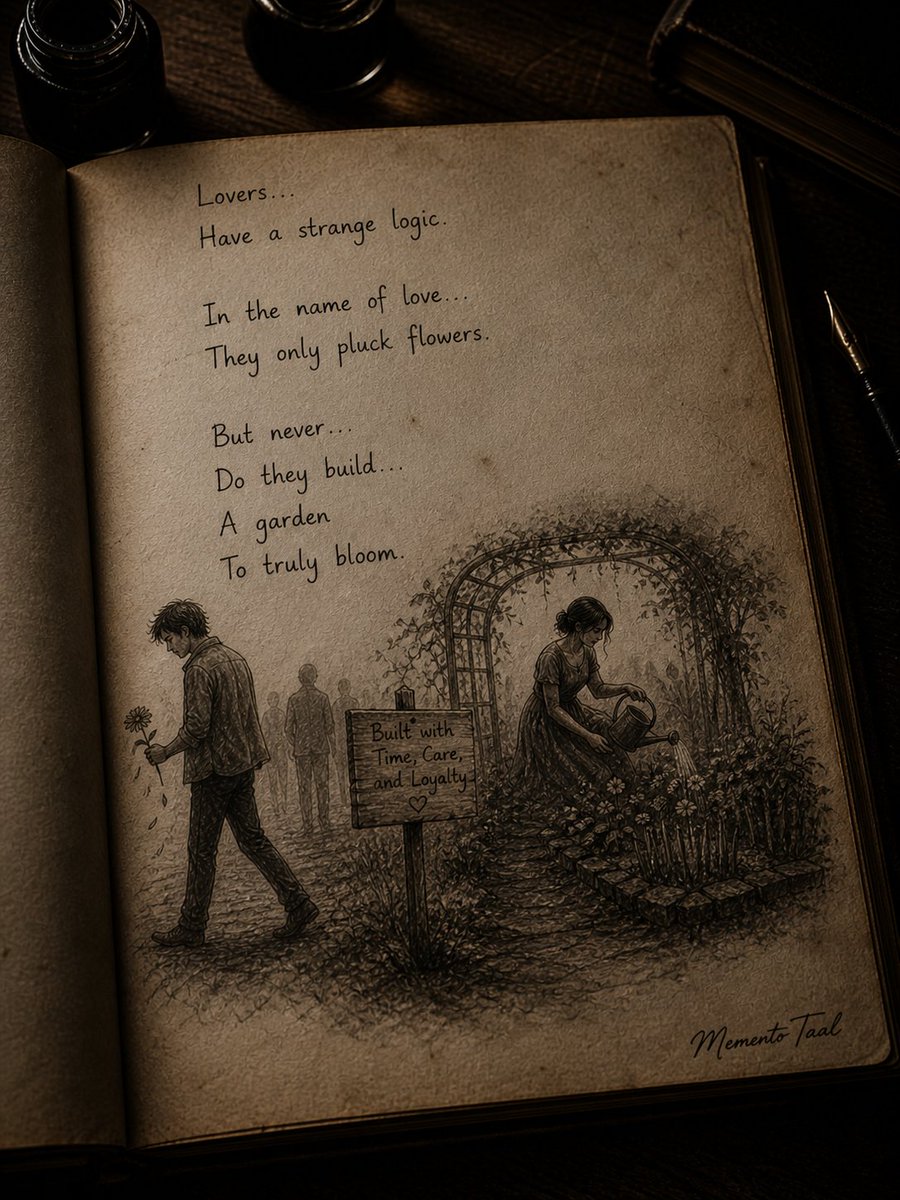 Lovers...
Have a strange logic.
In the name of love...
They only pluck flowers.
But never...
Do they build...
A garden
To truly bloom.
Built with
Time, Care,
and Loyalty
Memento Taal